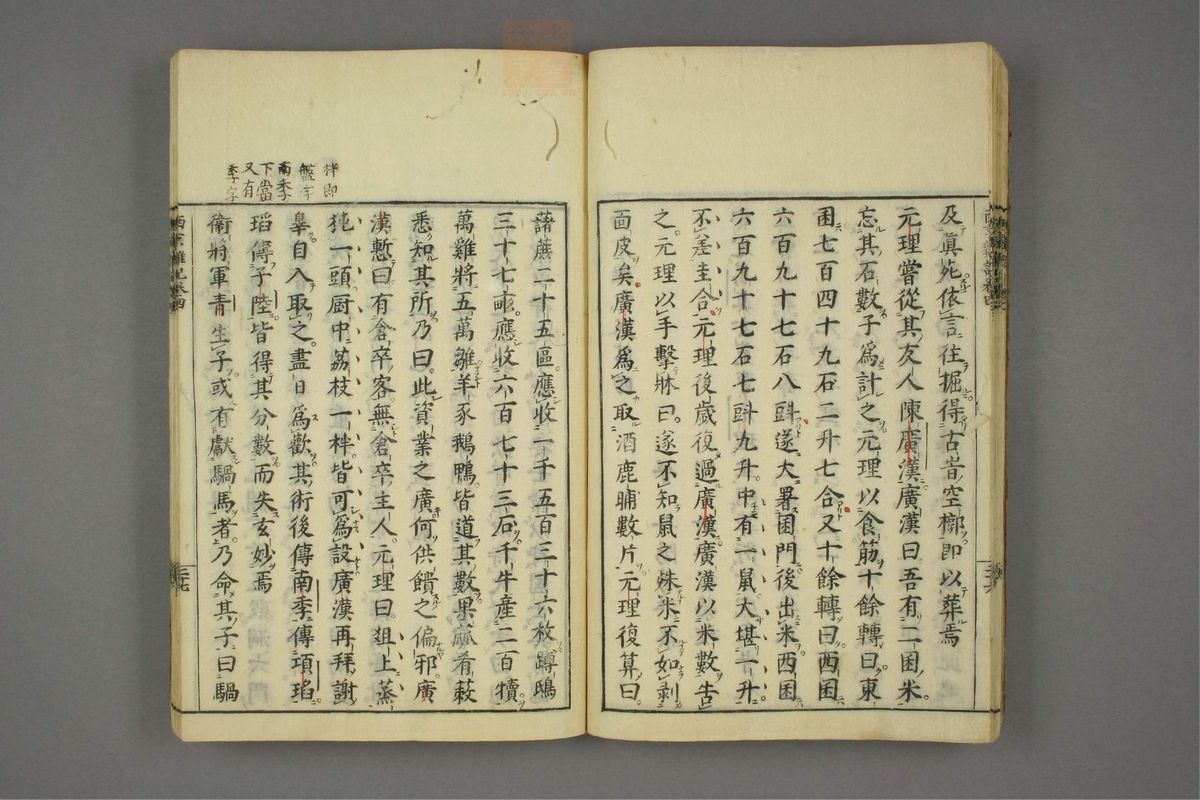 及眞死依言往掘得古昔空槨即以葬焉
元理嘗從其友人陳廣漢廣漢曰吾有二囷米
忘其石數子爲計之元理以食筯十餘轉曰東
囷七百四十九石二升七合又十餘轉曰西囷
六百九十七石八㪷遂大署囷門後出米西囷
六百九十七石七㪷九升中有一鼠大堪一升
不差圭合元理後歲復過廣漢廣漢以米數告
之元理以手擊牀曰遂不知鼠之殊米不如剥
面皮矣廣漢爲之取酒鹿脯數片元理復算曰
藷蔗二十五區應收一千五百三十六枚蹲鴟
三十七畝應收六百七十三石千牛産二百犢
萬雞將五萬雛羊豕鵝鴨皆道其數果蓏肴蔌
悉知其所乃曰此資業之廣何供饋之偏邪廣
漢慙曰有倉卒客無倉卒主人元理曰俎上蒸
㹠一頭厨中荔枝一柈皆可爲設廣漢再拜謝
辠自入取之盡日爲歡其術後傳南季傳項瑫
瑫傳子陸皆得其分數而失玄妙焉
衞將軍青生子或有獻騧馬者乃命其子曰騧
柈即
盤字
南季
下當
又有
季字
西京雜記卷四
二十七